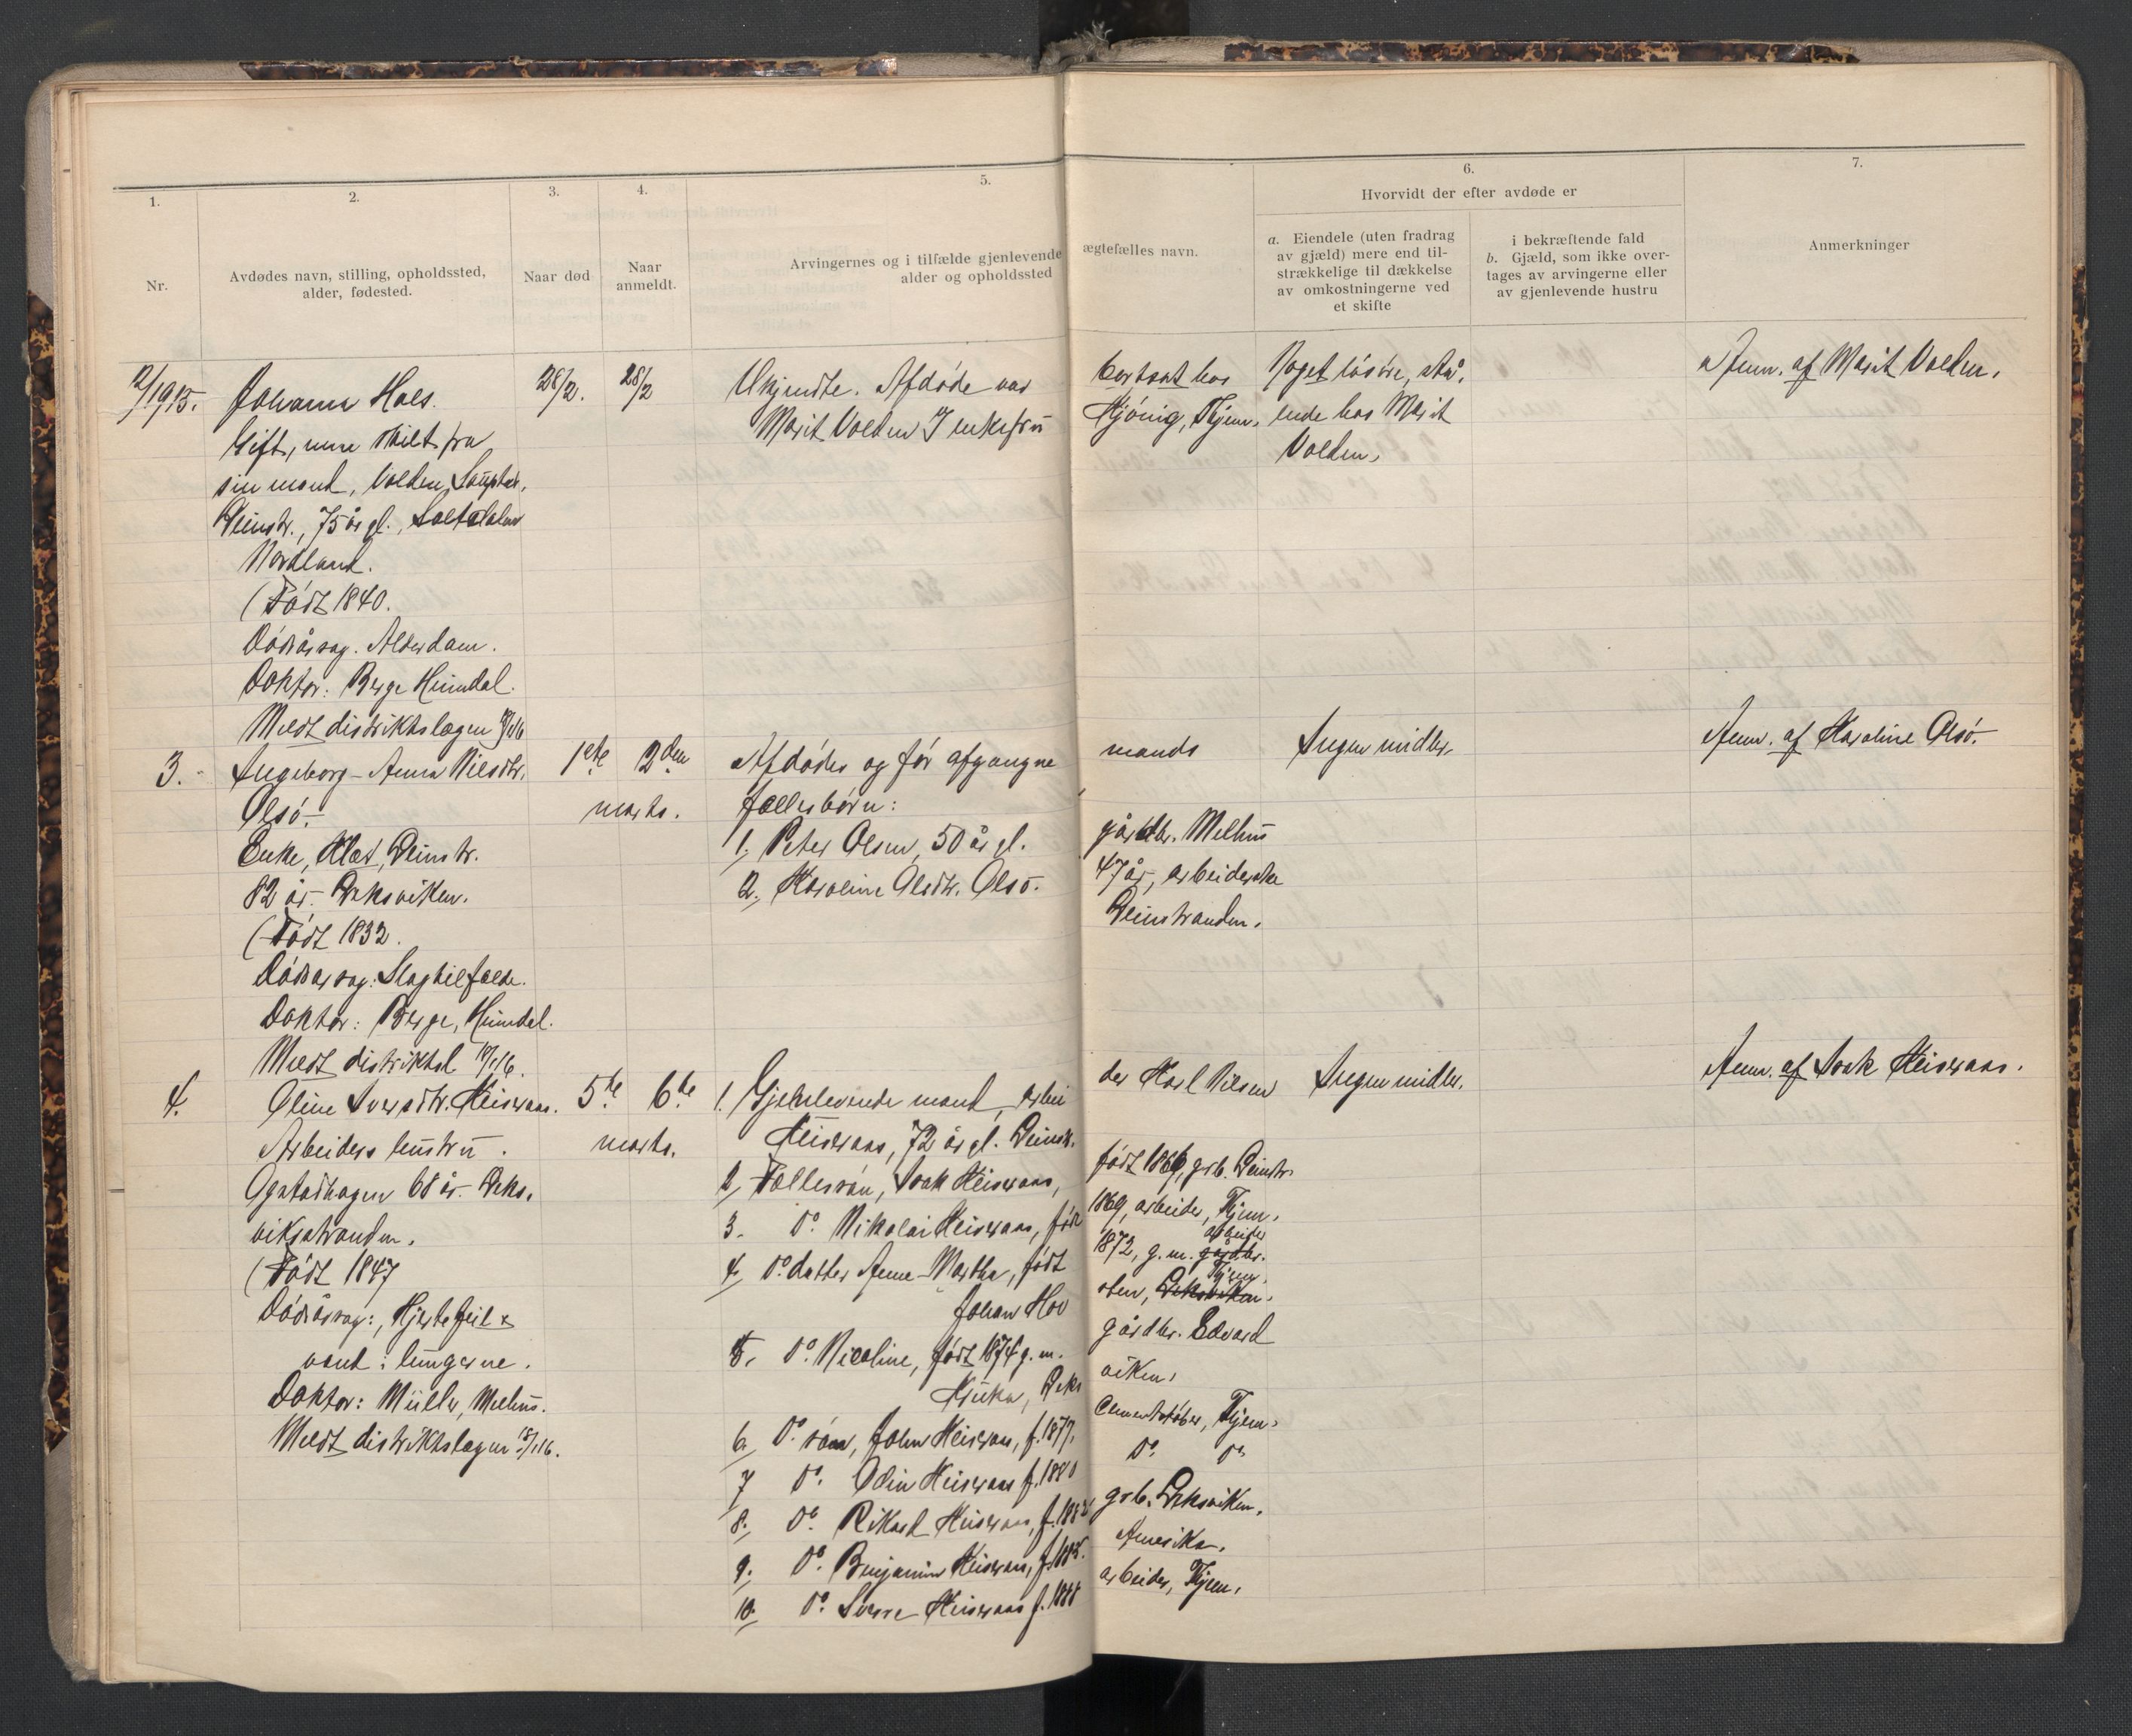 1.
2.
3.
4.
5.
6.
7.
Nr.
Avdødes navn, stilling, opholdssted,
alder, fødested.
Naar død
Naar
anmeldt.
Arvingernes og i tilfælde gjenlevende ægtefælles navn.
alder og opholdssted
Hvorvidt der efter avdøde er
a. Eiendele (uten fradrag
av gjæld) mere end til-
strækkelige til dækkelse
av omkostningerne ved
et skifte
i bekræftende fald
b. Gjæld, som ikke over-
tages av arvingerne eller
av gjenlevende hustru
Anmerkninger
2/1915.
Johanna Hals.
Gift, men skilt fra
sin mand, Volden,
Leinstr., 75 år gl.,
Nordland.
(Født 1840.
Dødsårsag. Alderdom.
Doktor: Berge Heimdal.
Meldt distriktslægen
28/2.
28/2
Ukjendte. Afdøde var bortsat hos
Marit Volden Tjem.
Noget løsøre, stå-
ende hos Marit
Volden.
Anm. af Marit Volden.
3.
Ingeborg-Anna Nilsdtr.
Olsø.
Enke, Klæt, Leinstr.
82 år. Leksviken.
(Født 1832.
Dødsårsag: Slagtilfælde.
Doktor: Berge, Heimdal.
Meldt distriktsl.
1ste 2den
marts.
Afdødes og før afgangne mands
fællesbørn:
1. Peter Olsen, 50 år gl. gårdbr. Melhus
2. Karoline Olsdtr. Olsø. 47 år, arbeiderske
Leinstranden.
Ingen midler.
Anm. af Karoline Olsø.
4.
Oline Iversdtr. Heisraas.
Arbeiders hustru.
68 år. Leks-
vikstranden.
(Født 1847
Dødsårsag:, Hjertefeil &
vand i lungerne.
Doktor: Müller, Melhus.
Meldt distriktslægen
5te 6te
marts.
1. Gjenlevende mand, arbeider Karl Nilsen
Heisraas, 72 år gl. Leinstr.
2. Fællessøn, Isak Heisraas, født 1866, grb. Leinstr.
3. Do. Nikolai Heisraas, født 1869, arbeider, Tjem.
4. Do. datter Anne-Martha, født 1872, g.m. gårdbr. arbeider
Johan Hovsten, Leksviken. Tjem.
5. Do. Nicoline, født 1874 g.m. gårdbr. Edvard
Leksviken.
6. Do. søn, John Heisraas, f. 1877, Cementstøber, Tjem.
7 Do. Odin Heisraas f. 1880 Do. Do.
8. Do. Rikard Heisraas, f. 1882 grb. Leksviken.
9. Do. Benjamin Heisraas, f. 1885. Amerika.
10. Do. Sverre Heisraas f. 1888 arbeider, Tjem.
Ingen midler.
Anm. af Isak Heisraas.